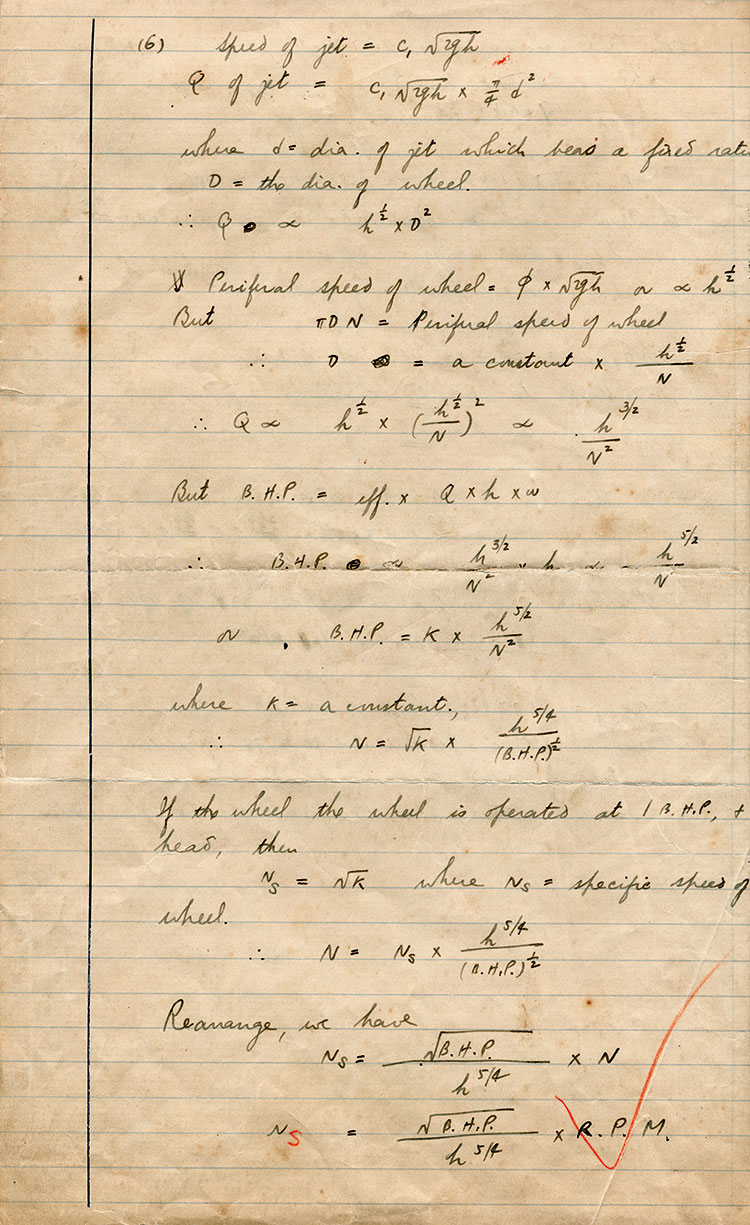 (6) Speed of jet = C₁ √2gh
Q of jet = C₁ √2gh × π/4 d²
where d = dia. of jet which bears a fixed ratio
D = the dia. of wheel.
∴ Q ∝ h^½ × D²
Periferal speed of wheel = φ × √2gh or ∝ h^½
But πDN = Periferal speed of wheel
∴ D = a constant × h^½/N
∴ Q ∝ h^½ × (h^½/N)² ∝ h^3/2/N²
But B.H.P. = eff. × Q × h × w
∴ B.H.P. ∝ h^3/2/N² × h ∝ h^5/2/N
or B.H.P. = K × h^5/2/N²
where K = a constant,
∴ N = √K × h^5/4/(B.H.P.)^½
If the wheel the wheel is operated at 1 B.H.P., +
head, then
N_S = √K where N_S = specific speed of
wheel.
∴ N = N_S × h^5/4/(B.H.P.)^½
Rearrange, we have
N_S = √B.H.P./h^5/4 × N
N_S = √B.H.P./h^5/4 × R.P.M.